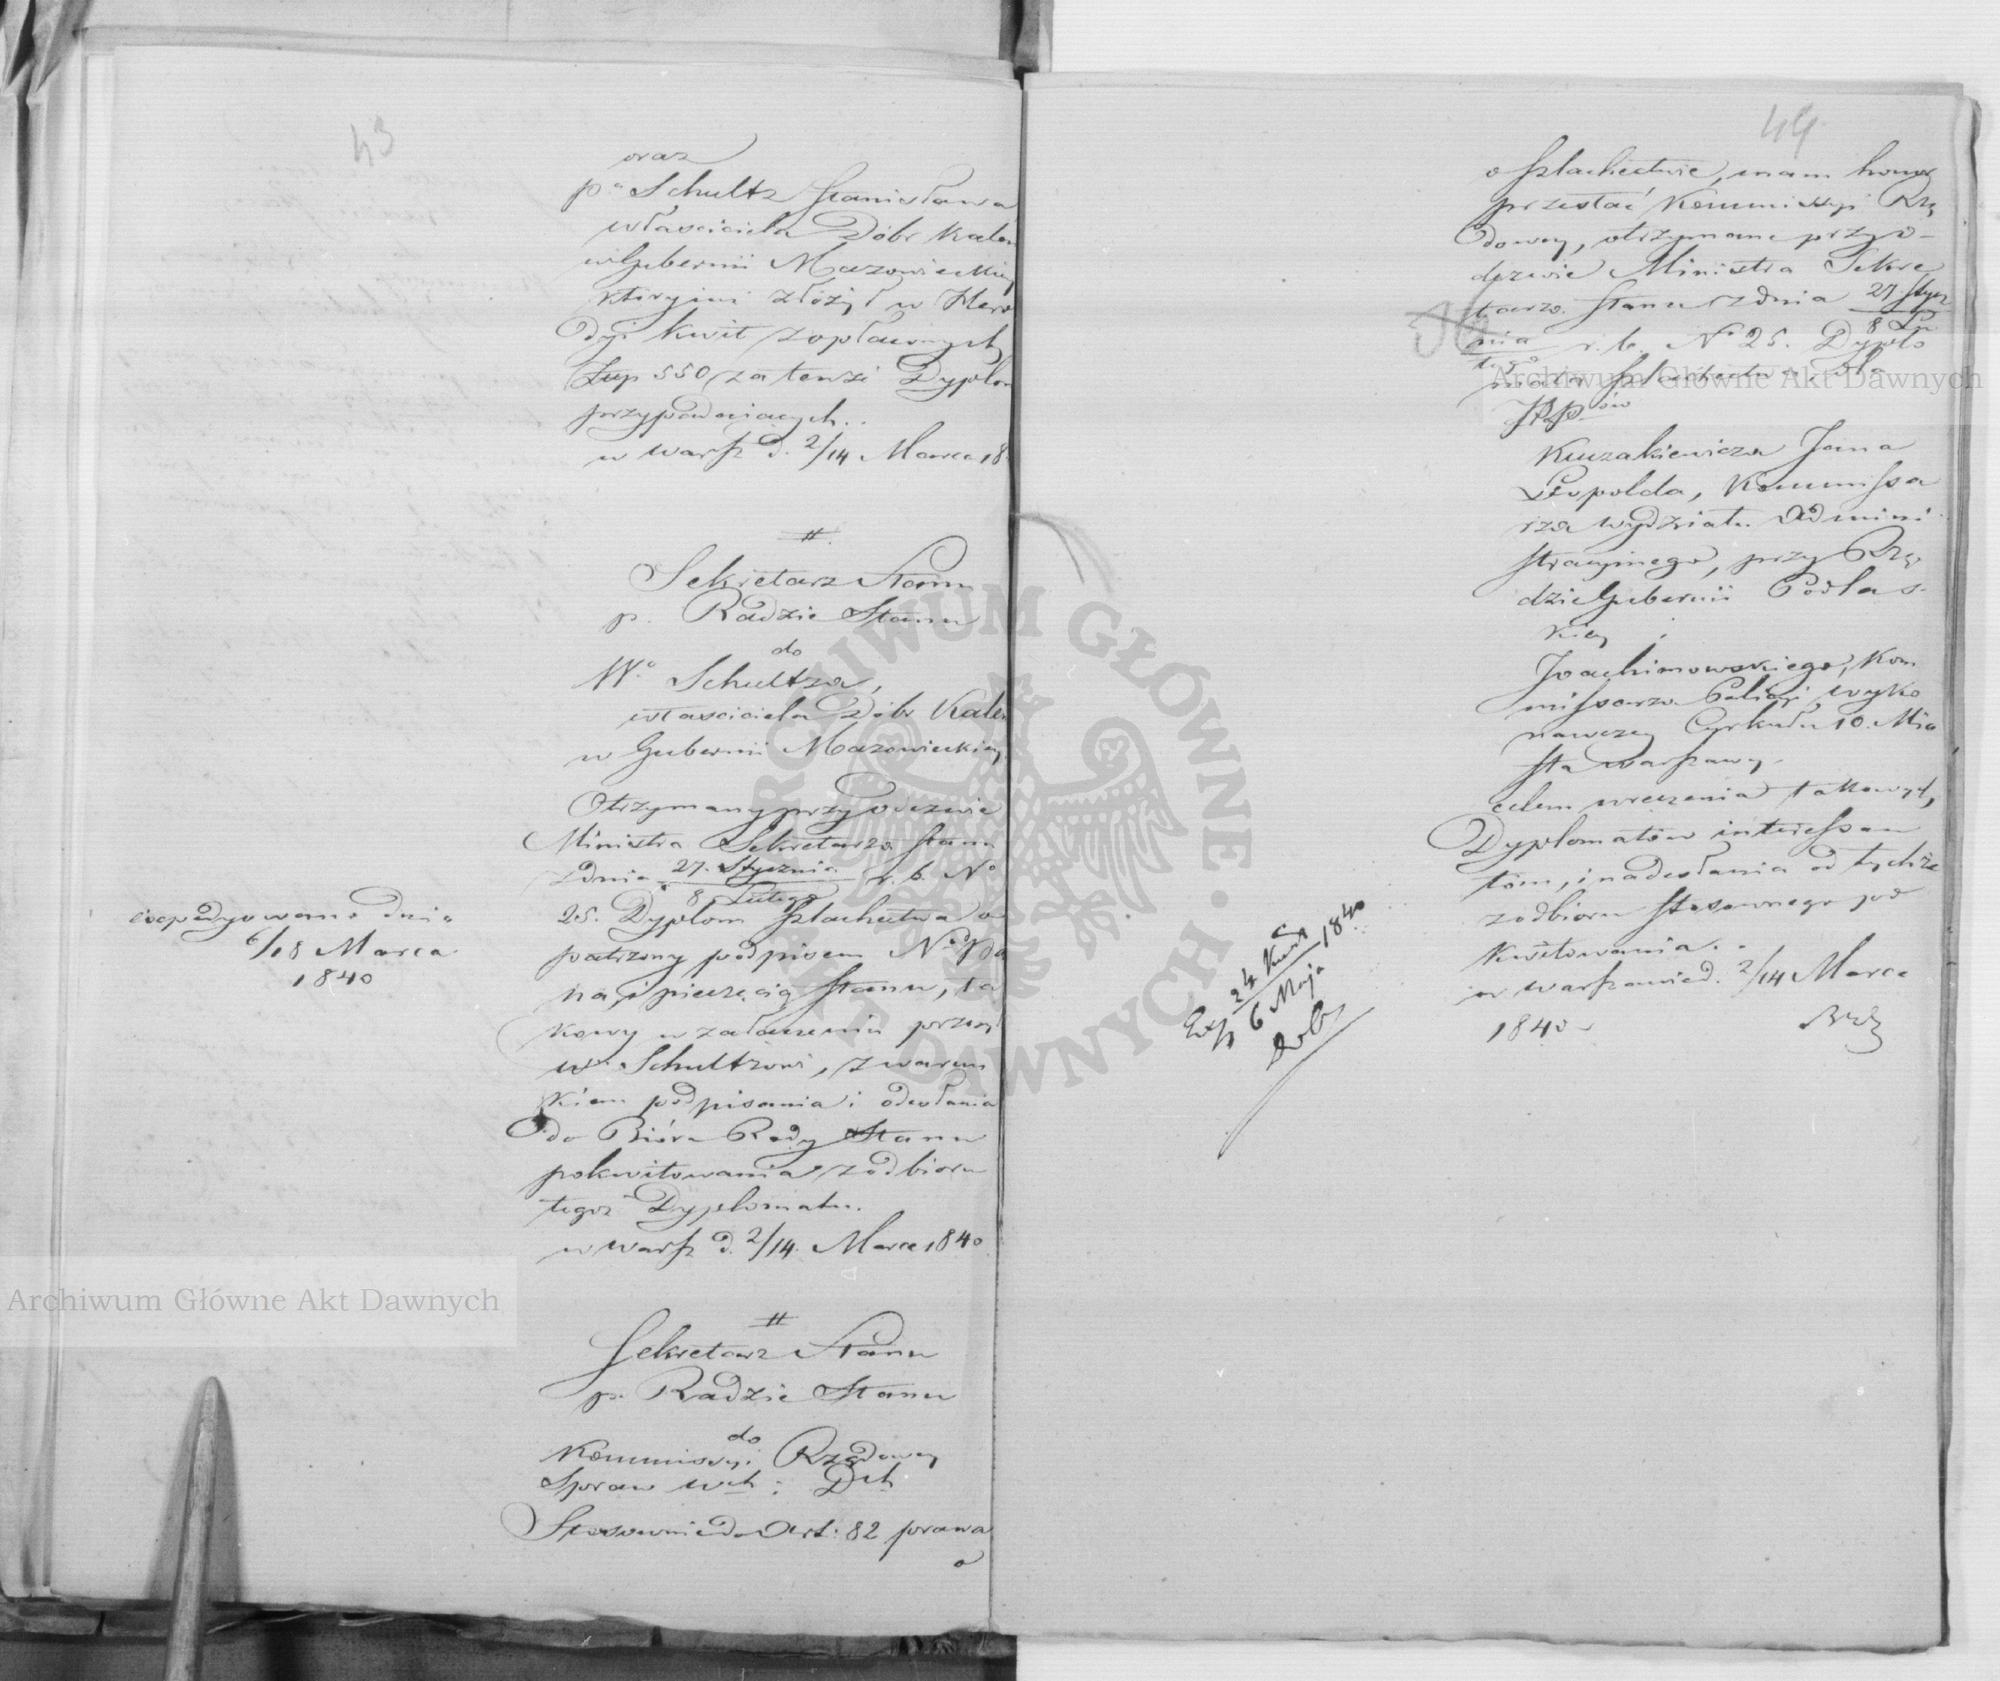 43
oraz
pa Schultz Stanisława
właściciela Dóbr Kalen
w Gubernii Mazowieckiey
któryini złożył w Herol
dyi kwit z opłaconych
Złup 550 za tenże Dyplom
przypadaiących.
w Warsz d. 2/14 Marca 18
Sekretarz Stanu
p. Radzie Stanu
do
Wo Schultza,
właściciela Dóbr Kalen
w Gubernii Mazowieckiey
Otrzymany przy odezwie
Ministra Sekretarza Stanu
z dnia 27. Stycznia / 8 Lutego r. b. No
25. Dyplom Szlachectwa o
patrzony podpisem Nayja
na, i pieczęcią Stanu, ta
kowy w załączeniu przesy
W. Schultzowi, z warun
kiem podpisania i odesłania
do Bióra Rady Stanu
pokwitowania z odbioru
tegoż Dyplomatu.
w Warsz d. 2/14. Marca 1840
expedyowano dnia
6/18 Marca
1840
Sekretarz Stanu
p. Radzie Stanu
do
Kommissyi Rządowey
Spraw Wch i Dch
Stosownie do Art: 82 prawa
o
44
o Szlachectwie, mam honor
przesłać Kommissyi Rzą
dowey, otrzymane przy o-
dezwie Ministra Sekre
tarza Stanu z dnia 27. Stycz
nia / 8 Lu
tego r. b. No 25. Dyplo
mata Szlachectwa, dla
JPPów
Kuczakiewicza Jana
Leopolda, Kommissa
rza Wydziału Admini
stracyjnego, przy Rzą
dzie Gubernii Podlas
kiey i
Joachimowskiego, Kom
missarza Policyi Wyko
nawczey Cyrkułu 10. Mia
sta Warszawy.
celem wręczenia takowych
Dyplomatów interessan
tom, i nadesłania od tychże
z odbioru stosownego po
kwitowania.
w Warszawie d. 2/14 Marca
1840
Exp 24 Kwiet / 6 Maja 1840
Archiwum Główne Akt Dawnych
Archiwum Główne Akt Dawnych
ARCHIWUM GŁÓWNE AKT DAWNYCH